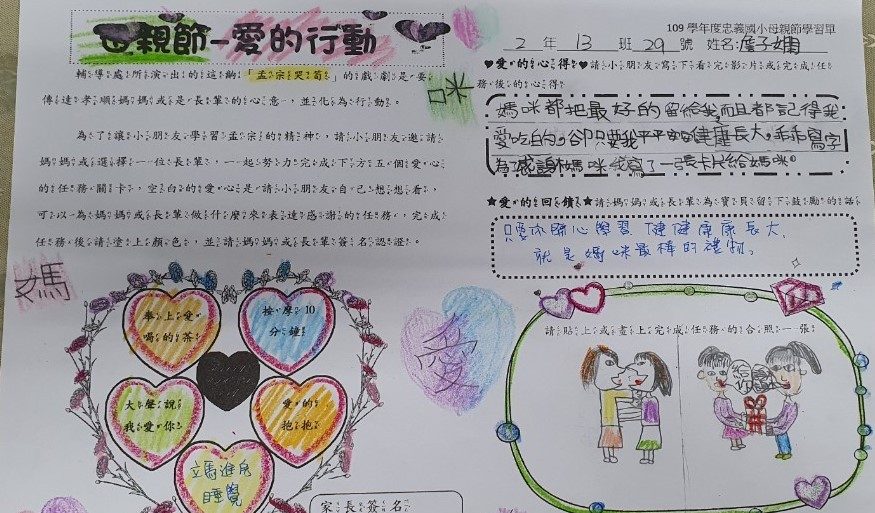 母親節-愛的行動
109 學年度忠義國小母親節學習單
2 年 13 班 29 號 姓名:
輔導處所演出的這齣「孟宗哭筍」的戲劇是要
傳達孝順媽媽或是長輩的心意，並化為行動。
為了讓小朋友學習孟宗的精神，請小朋友邀請
媽媽或選擇一位長輩，一起努力完成下方五個愛心
的任務關卡，空白的愛心是請小朋友自己想想看，
可以為媽媽或長輩做什麼來表達感謝的任務，完成
任務後請塗上顏色，並請媽媽或長輩簽名認證。
咪
媽
愛
♥愛的心得♥請小朋友寫下看完影片或完成任
務後的心得
媽咪都把最好的留給我,而且都記得我
愛吃的,卻只要我平平安安健康長大,乖乖寫字
為了感謝媽咪我寫了一張卡片給媽咪。
★愛的回饋★請媽媽或長輩為寶貝留下鼓勵的話
只要你開心學習、健健康康長大,
就是媽咪最棒的禮物。
奉上愛
喝的茶
按摩10
分鐘
大聲說
我愛你
愛的
抱抱
立馬進房
睡覺
請貼上或畫上完成任務的合照一張
家長簽名